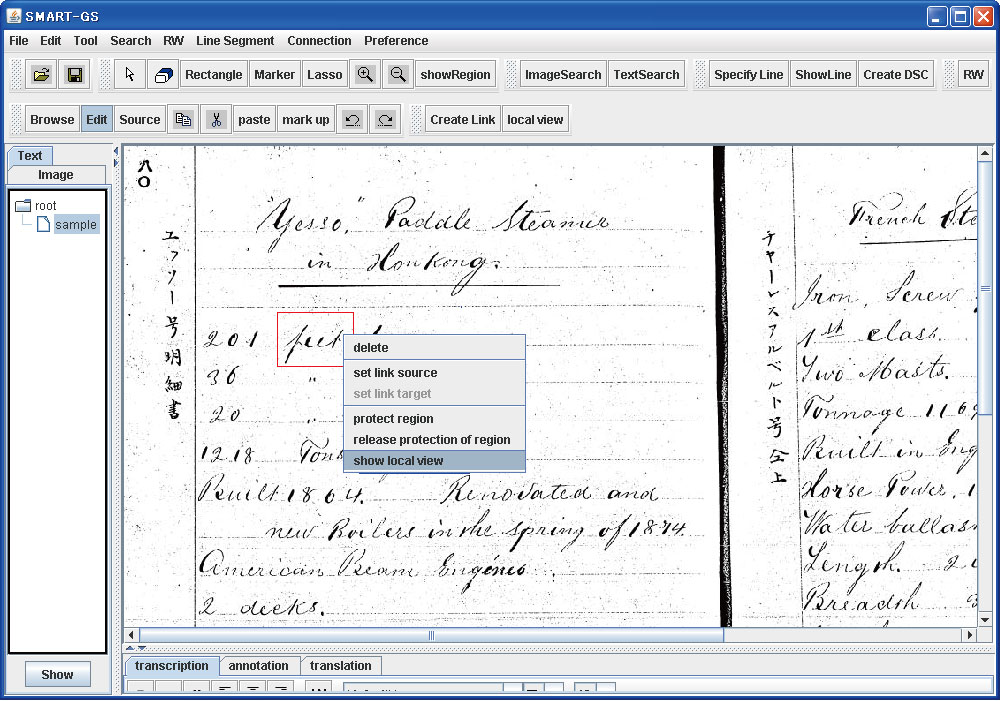 SMART-GS
File Edit Tool Search RW Line Segment Connection Preference
Rectangle Marker Lasso showRegion ImageSearch TextSearch Specify Line ShowLine Create DSC RW
Browse Edit Source paste mark up Create Link local view
Text
Image
root
sample
Show
八〇
エッソー号明細書
"Yesso," Paddle Steamer
in Honkong.
201 feet
36 "
20 "
1218 Tons
Built 1864. Renovated and
new Boilers in the spring of 1874.
American Beam Engines.
2 decks.
delete
set link source
set link target
protect region
release protection of region
show local view
チャーレスアルベルト号仝上
French Ste
Iron, Screw
1st class.
Two Masts.
Tonnage 110
Built in Eng
Horse Power, 1
Water ballas
Length. 2
Breadth
transcription annotation translation